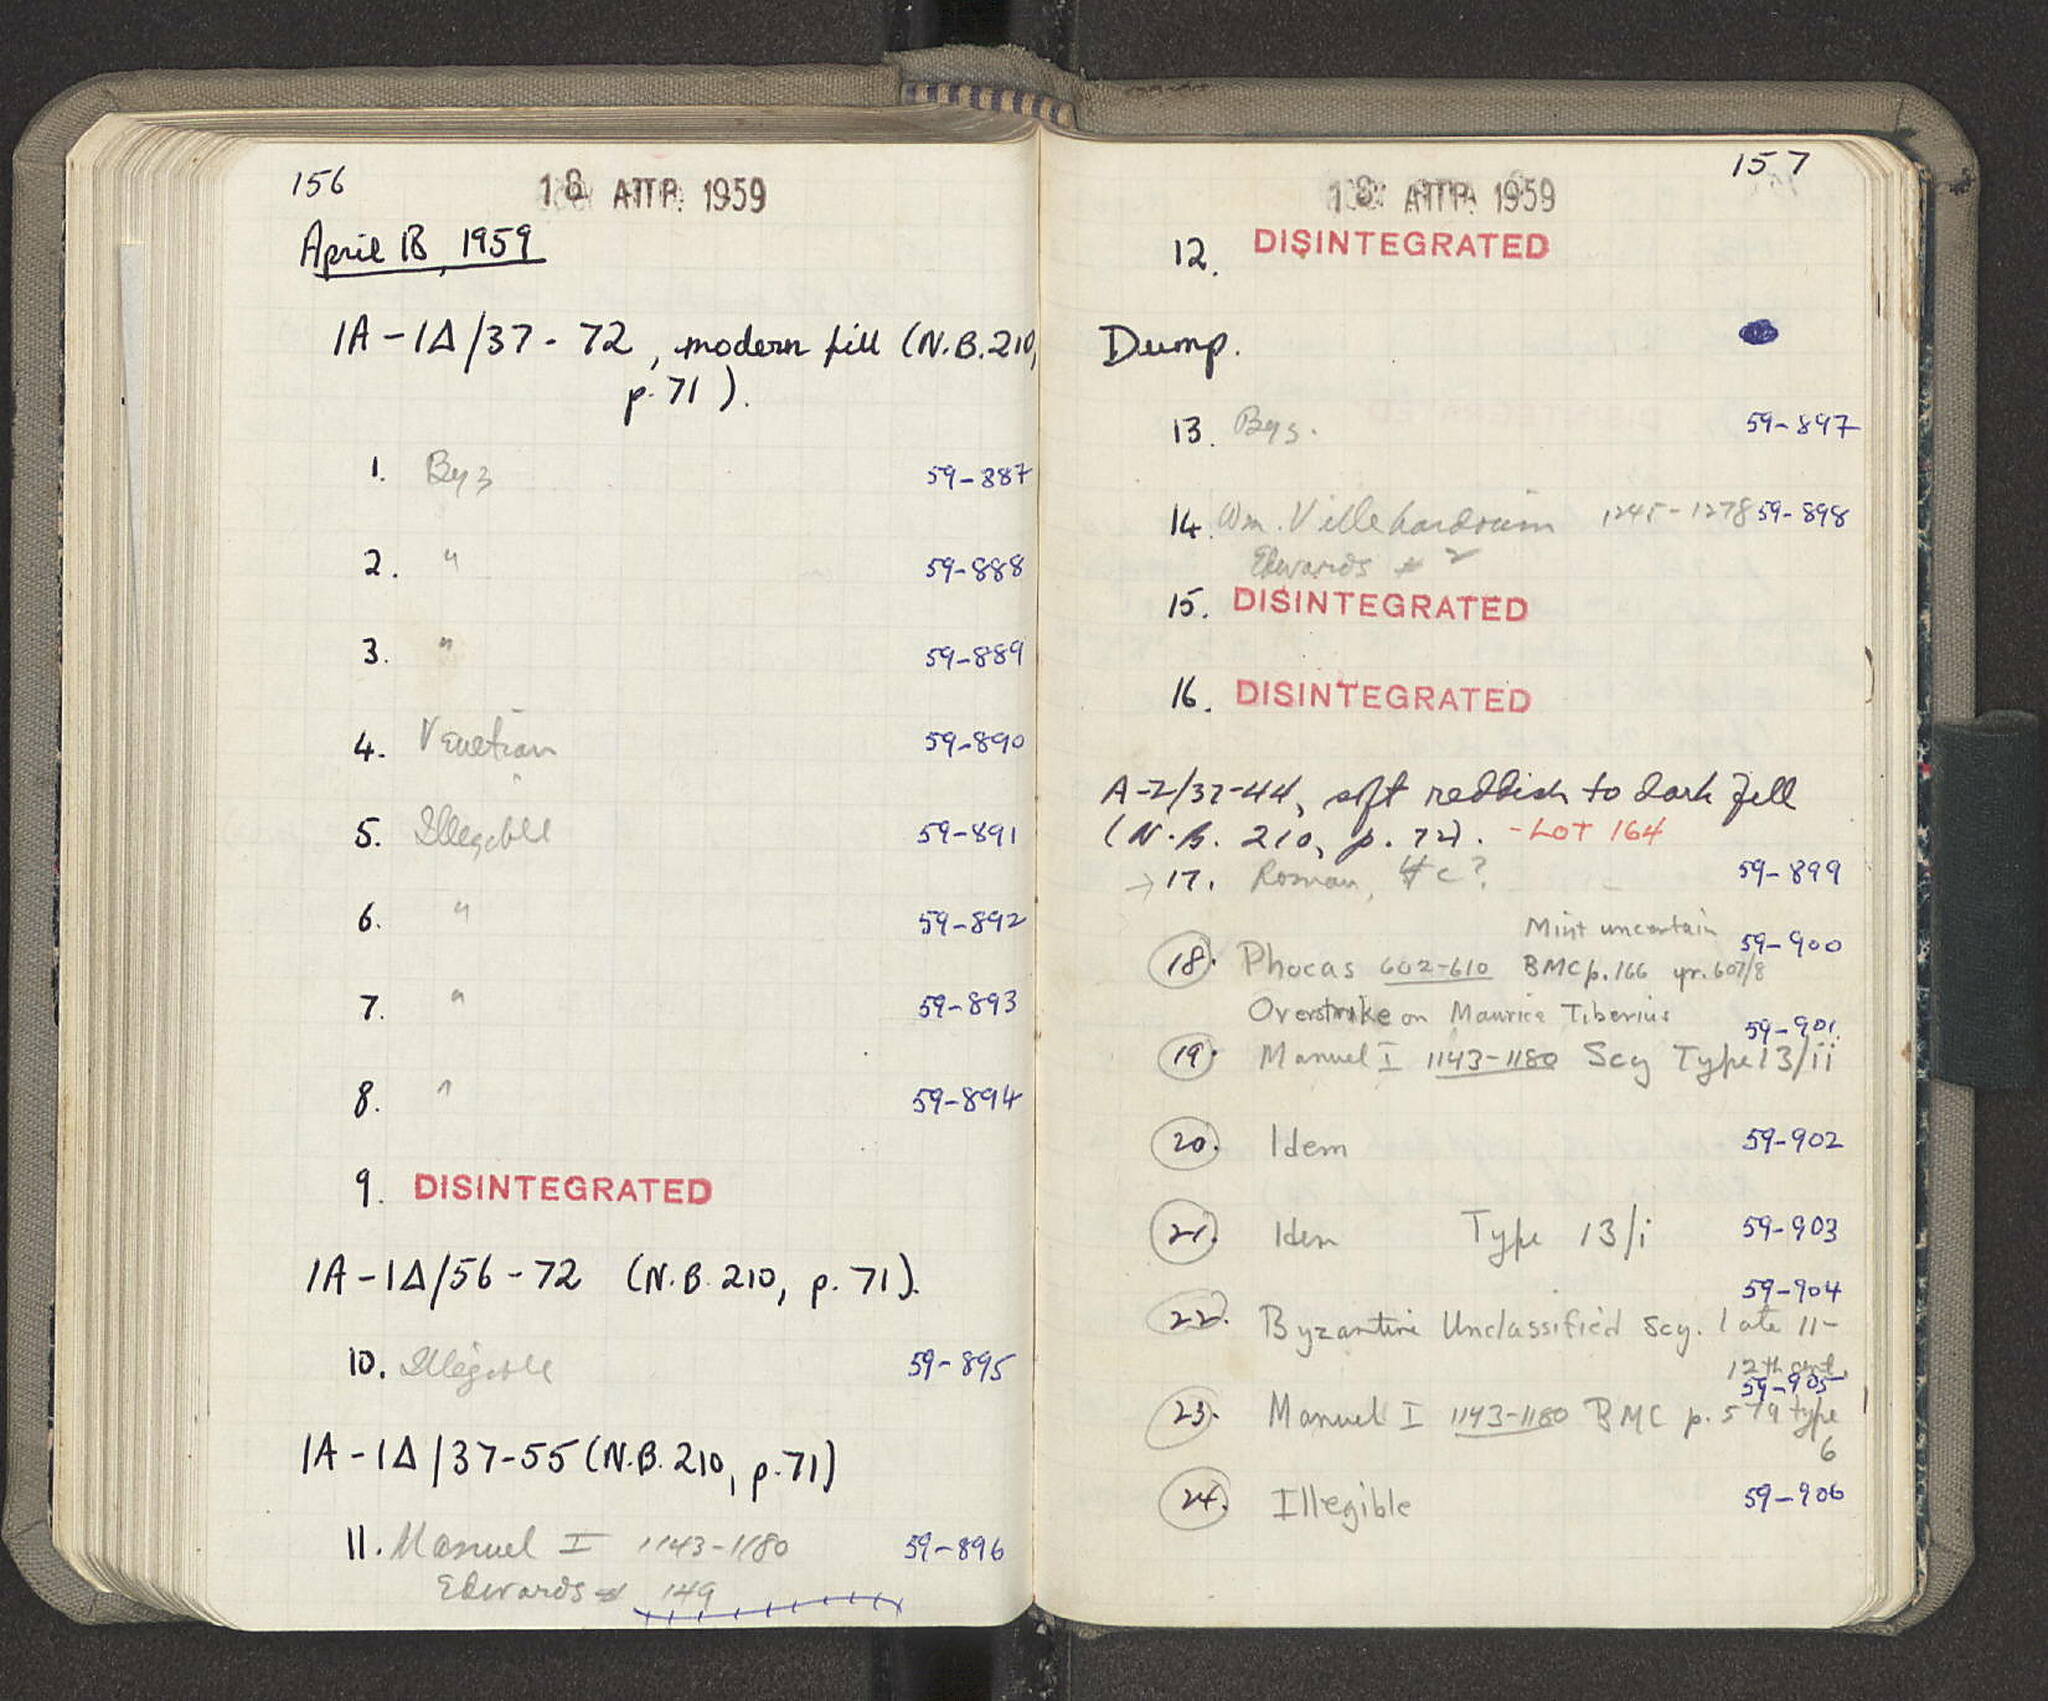 156
18 ΑΠΡ. 1959
April 18, 1959
1A-1Δ/37-72, modern fill (N.B. 210,
p. 71).
1. Byz 59-887
2. " 59-888
3. " 59-889
4. Venetian 59-890
5. Illegible 59-891
6. " 59-892
7. " 59-893
8. " 59-894
9. DISINTEGRATED
1A-1Δ/56-72 (N.B. 210, p. 71).
10. Illegible 59-895
1A-1Δ/37-55 (N.B. 210, p. 71)
11. Manuel I 1143-1180 59-896
Edwards # 149
157
18 ΑΠΡ. 1959
12. DISINTEGRATED
Dump.
13. Byz. 59-897
14. Wm. Villehardouin 1245-1278 59-898
Edwards # 2
15. DISINTEGRATED
16. DISINTEGRATED
A-Z/37-44, soft reddish to dark fill
(N.B. 210, p. 72). -LOT 164
→ 17. Roman, 4 c? 59-899
Mint uncertain 59-900
18. Phocas 602-610 BMC p. 166 yr. 607/8
Overstrike on Maurice Tiberius
59-901
19. Manuel I 1143-1180 Scy Type 13/ii
20. Idem 59-902
21. Idem Type 13/i 59-903
59-904
22. Byzantine Unclassified Scy. late 11-
12th cent.
59-905
23. Manuel I 1143-1180 BMC p. 579 type
6
24. Illegible 59-906